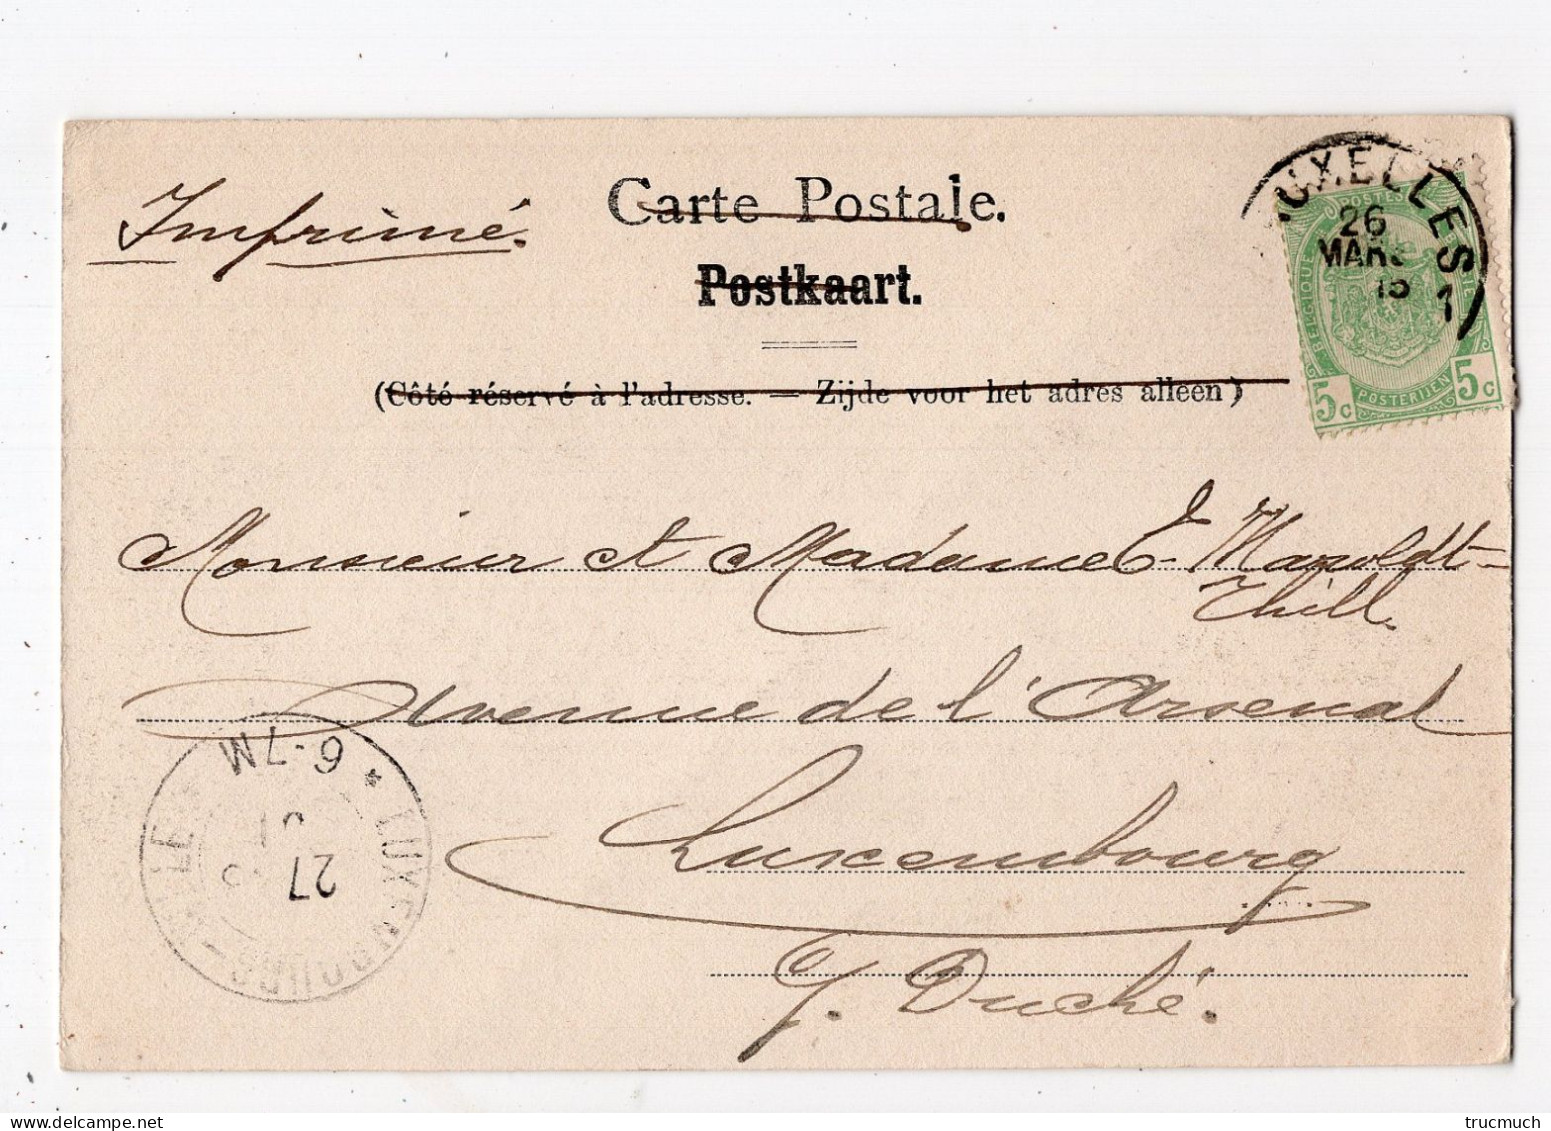 Imprimé.
Carte Postale.
Postkaart.
(Côté réservé à l'adresse. — Zijde voor het adres alleen)
UXELLES 1
26
MARS
15
POSTES
BELGIQUE
5c POSTERIJEN 5c
Monsieur et Madame E. Mayoldt-
Thill.
Avenue de l'Arsenal
Luxembourg
G. Duché.
6-7M
* LUXEMBOURG-
27
trucmuch